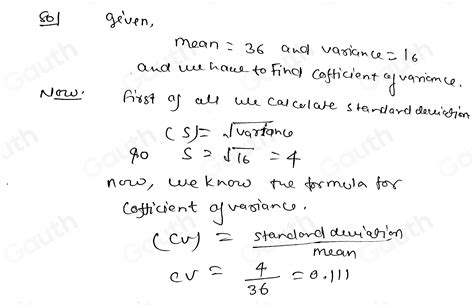 Sol given,
mean = 36 and variance = 16
and we have to find cofficient of variance.
Now. first of all we calculate standard deviation
(S) = √variance
so S = √16 = 4
now, we know the formula for
cofficient of variance.
(CV) = standard deviation / mean
CV = 4/36 = 0.111
Gauth